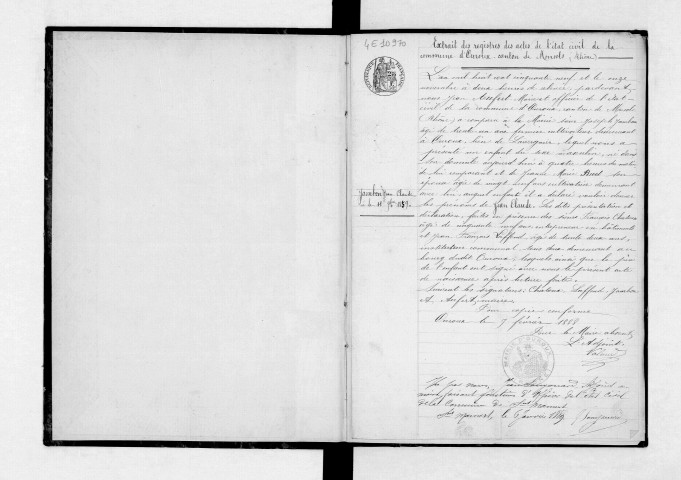 4E10970
Extrait des registres des actes de l'état civil de la
commune d'Ouroux canton de Monsols (Rhône)
L'an mil huit cent cinquante neuf et le onze
novembre à deux heures de pardevant
nous Jean Aufert Maire et officier de l'état
civil de la commune d'Ouroux, canton de Monsols
(Rhône) a comparu à la Mairie sieur Joseph Jambon
âgé de trente un ans fermier cultivateur demeurant
à Ouroux, lieu de lequel nous a
présenté un enfant du sexe masculin, né dans
son domicile aujourd'hui à quatre heures du matin
de lui comparant et de Jeanne Marie son
épouse âgée de vingt neuf ans cultivatrice demeurant
avec lui, auquel enfant il a déclaré vouloir donner
les prénoms de Jean Claude. Les dites présentation et
déclaration faites en présence des sieurs François Chateau
âgé de cinquante neuf ans entrepreneur en bâtiments
et Jean François Laffond, âgé de trente deux ans,
instituteur communal tous deux demeurant au
bourg dudit Ouroux; lesquels ainsi que le père
de l'enfant ont signé avec nous le présent acte
de naissance après lecture faite.
Suivent les signatures: Chateau, Laffond, Jambon
et Aufert, maire
Jambon Jean Claude
né le 11 9bre 1859.
Pour copie conforme
Ouroux le 7 février 1888
Pour le Maire absent
L'Adjoint
Ne pas vu, Adjoint
faisant fonctions d'Officier de l'état civil
de la Commune de
le 6 Janvier 1889